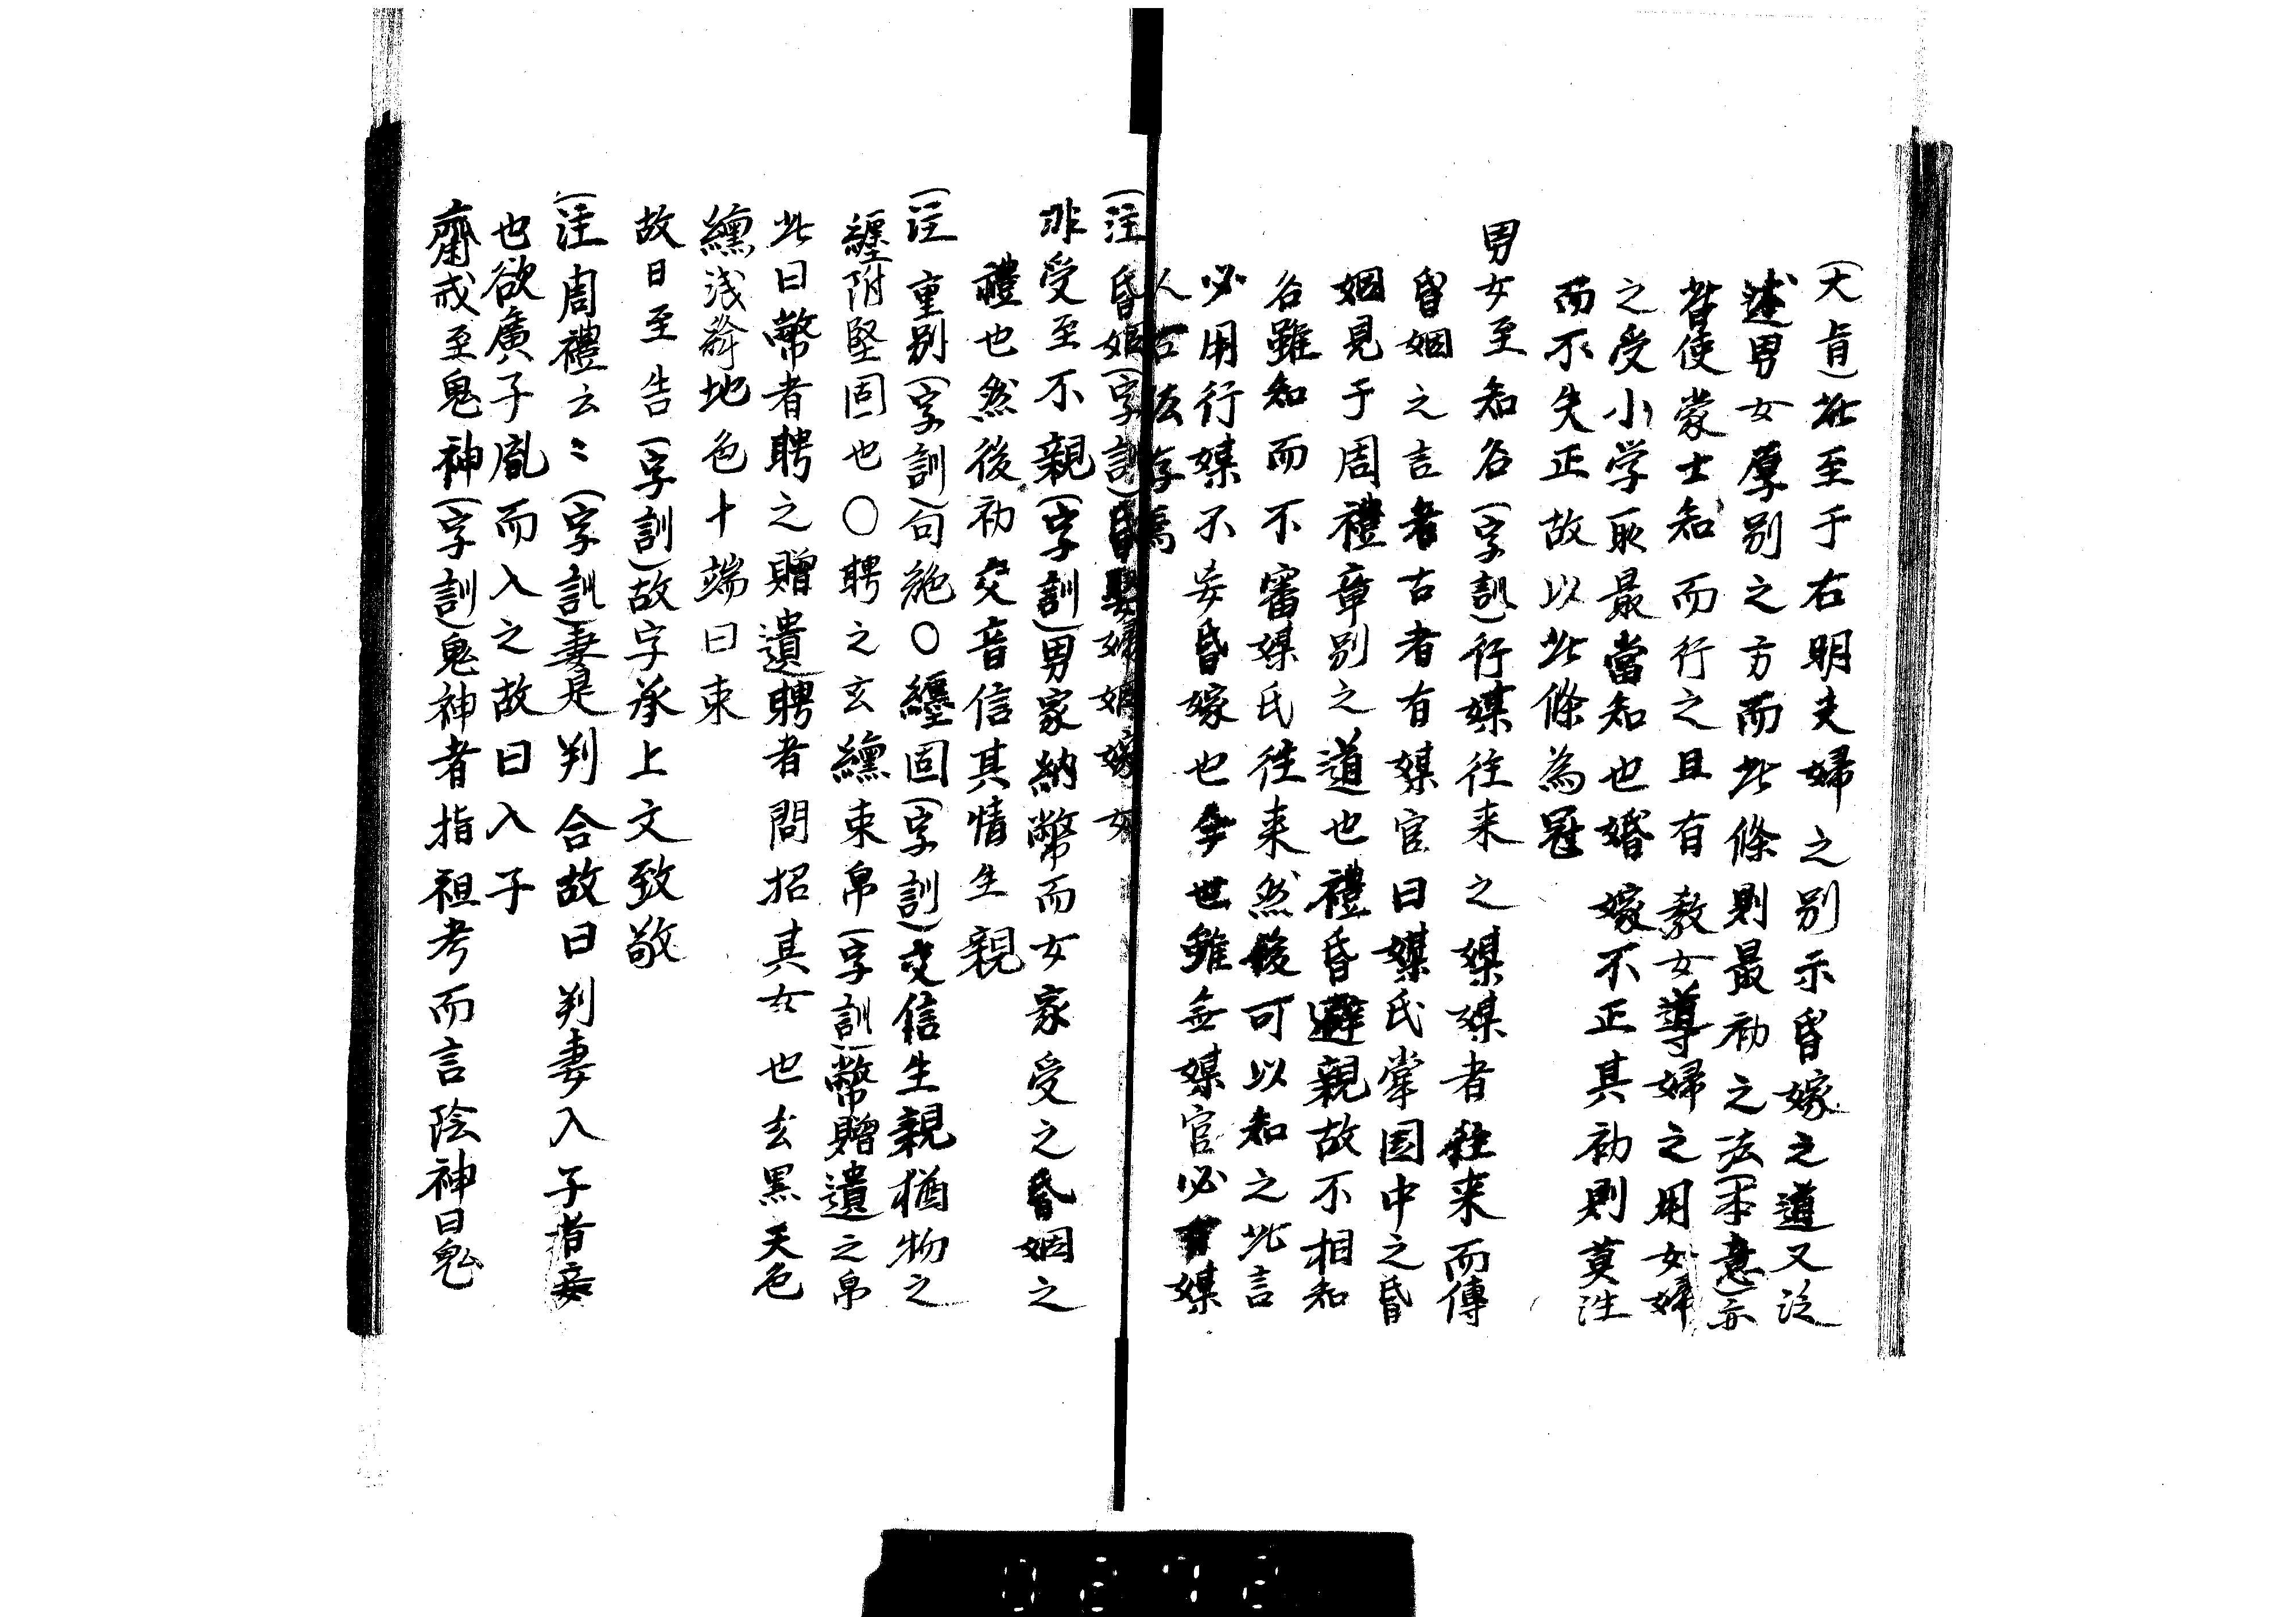 (大旨)此至于右明夫婦之別示昏嫁之道又泛
述男女厚別之方而此條則最初之法(本意)示
皆使蒙士知而行之且有教女導婦之用女婦
之受小学取最當知也婚嫁不正其初則莫性
而不失正故以此條為冠
男女至知名(字訓)行媒往来之媒媒者往来而傳
昏姻之言者古者有媒官曰媒氏掌国中之昏
姻見于周禮章別之道也禮昏避親故不相知
名雖知而不審媒氏往来然後可以知之此言
必用行媒不妄昏嫁也今世雖無媒官必有媒
人古法存焉
(注昏姻(字訓)昏娶婦姻嫁女
非受至不親(字訓)男家納幣而女家受之昏姻之
禮也然後初交音信其情生親
(注重別(字訓)句絶○纏固(字訓)交信生親猶物之
纏附堅固也○聘之玄纁束帛(字訓)幣贈遺之帛
此曰幣者聘之贈遺聘者問招其女也玄黒天色
纁浅絳地色十端曰束
故日至告(字訓)故字承上文致敬
(注周禮云〻(字訓)妻是判合故曰判妻入子者妾
也欲廣子胤而入之故曰入子
齋戒至鬼神(字訓)鬼神者指祖考而言陰神曰鬼